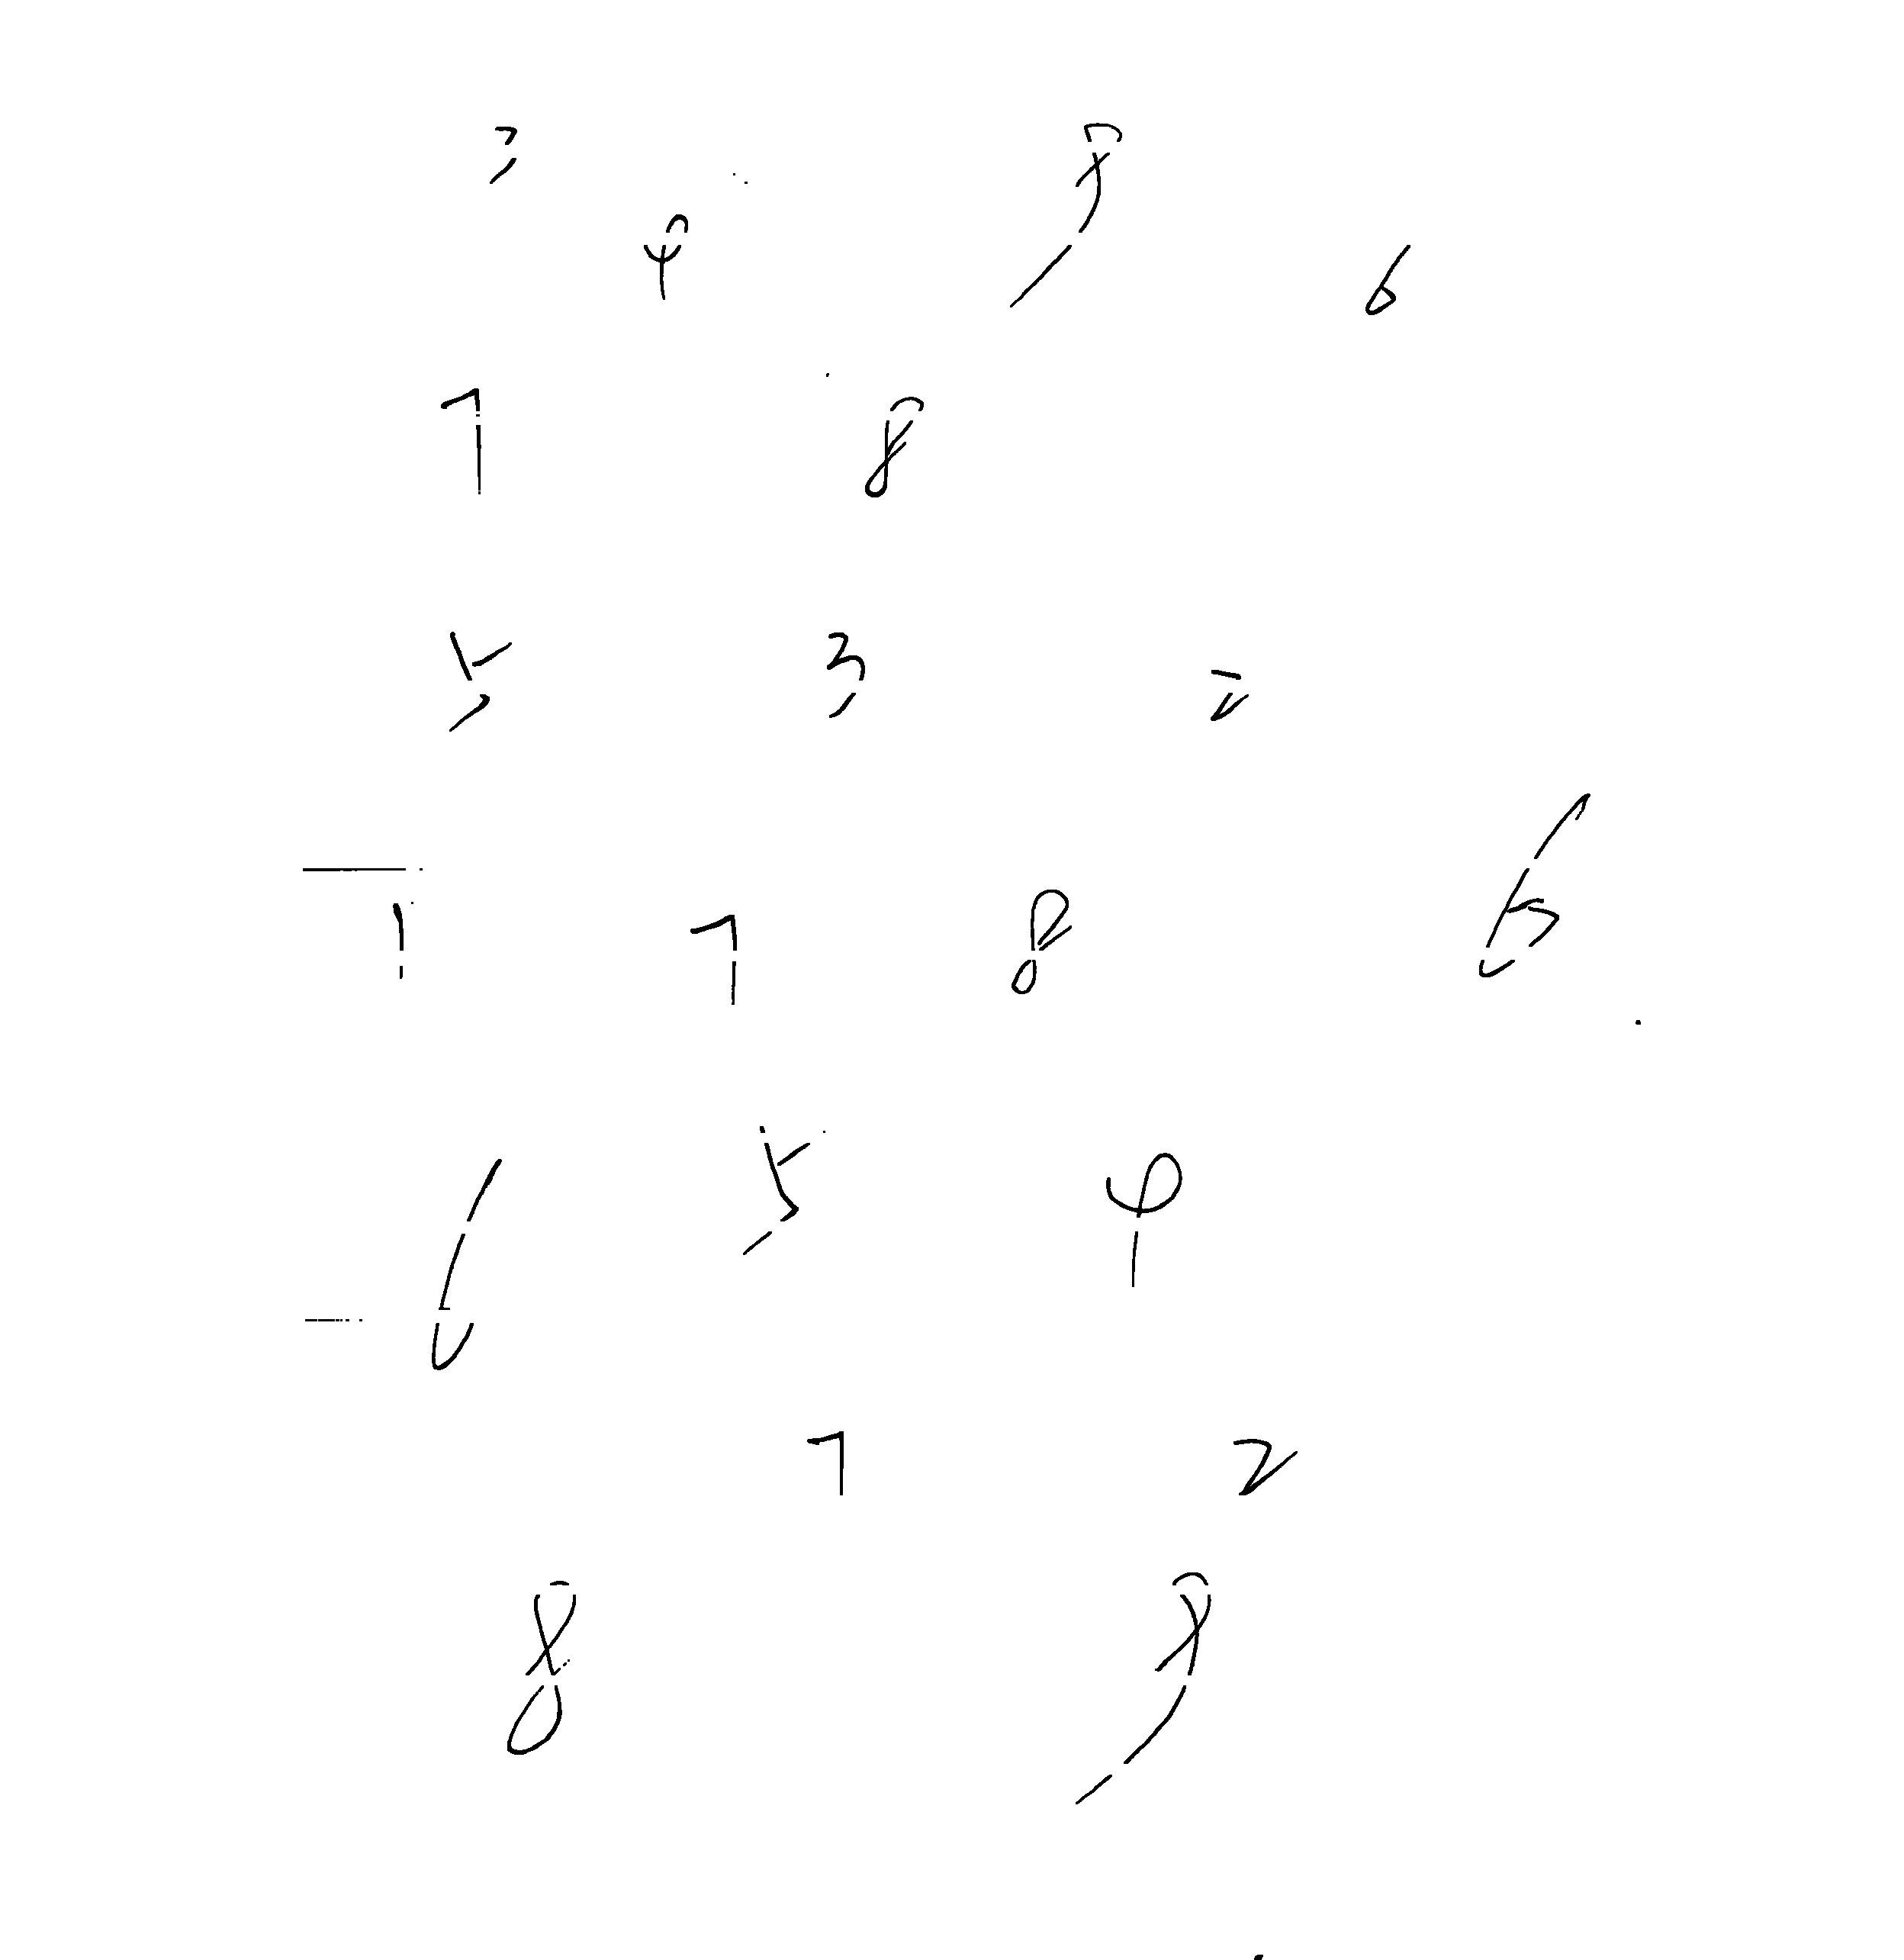 3 9
4 6
7 8
5 3 2
1 7 8 6
6 5 4
7 2
8 9